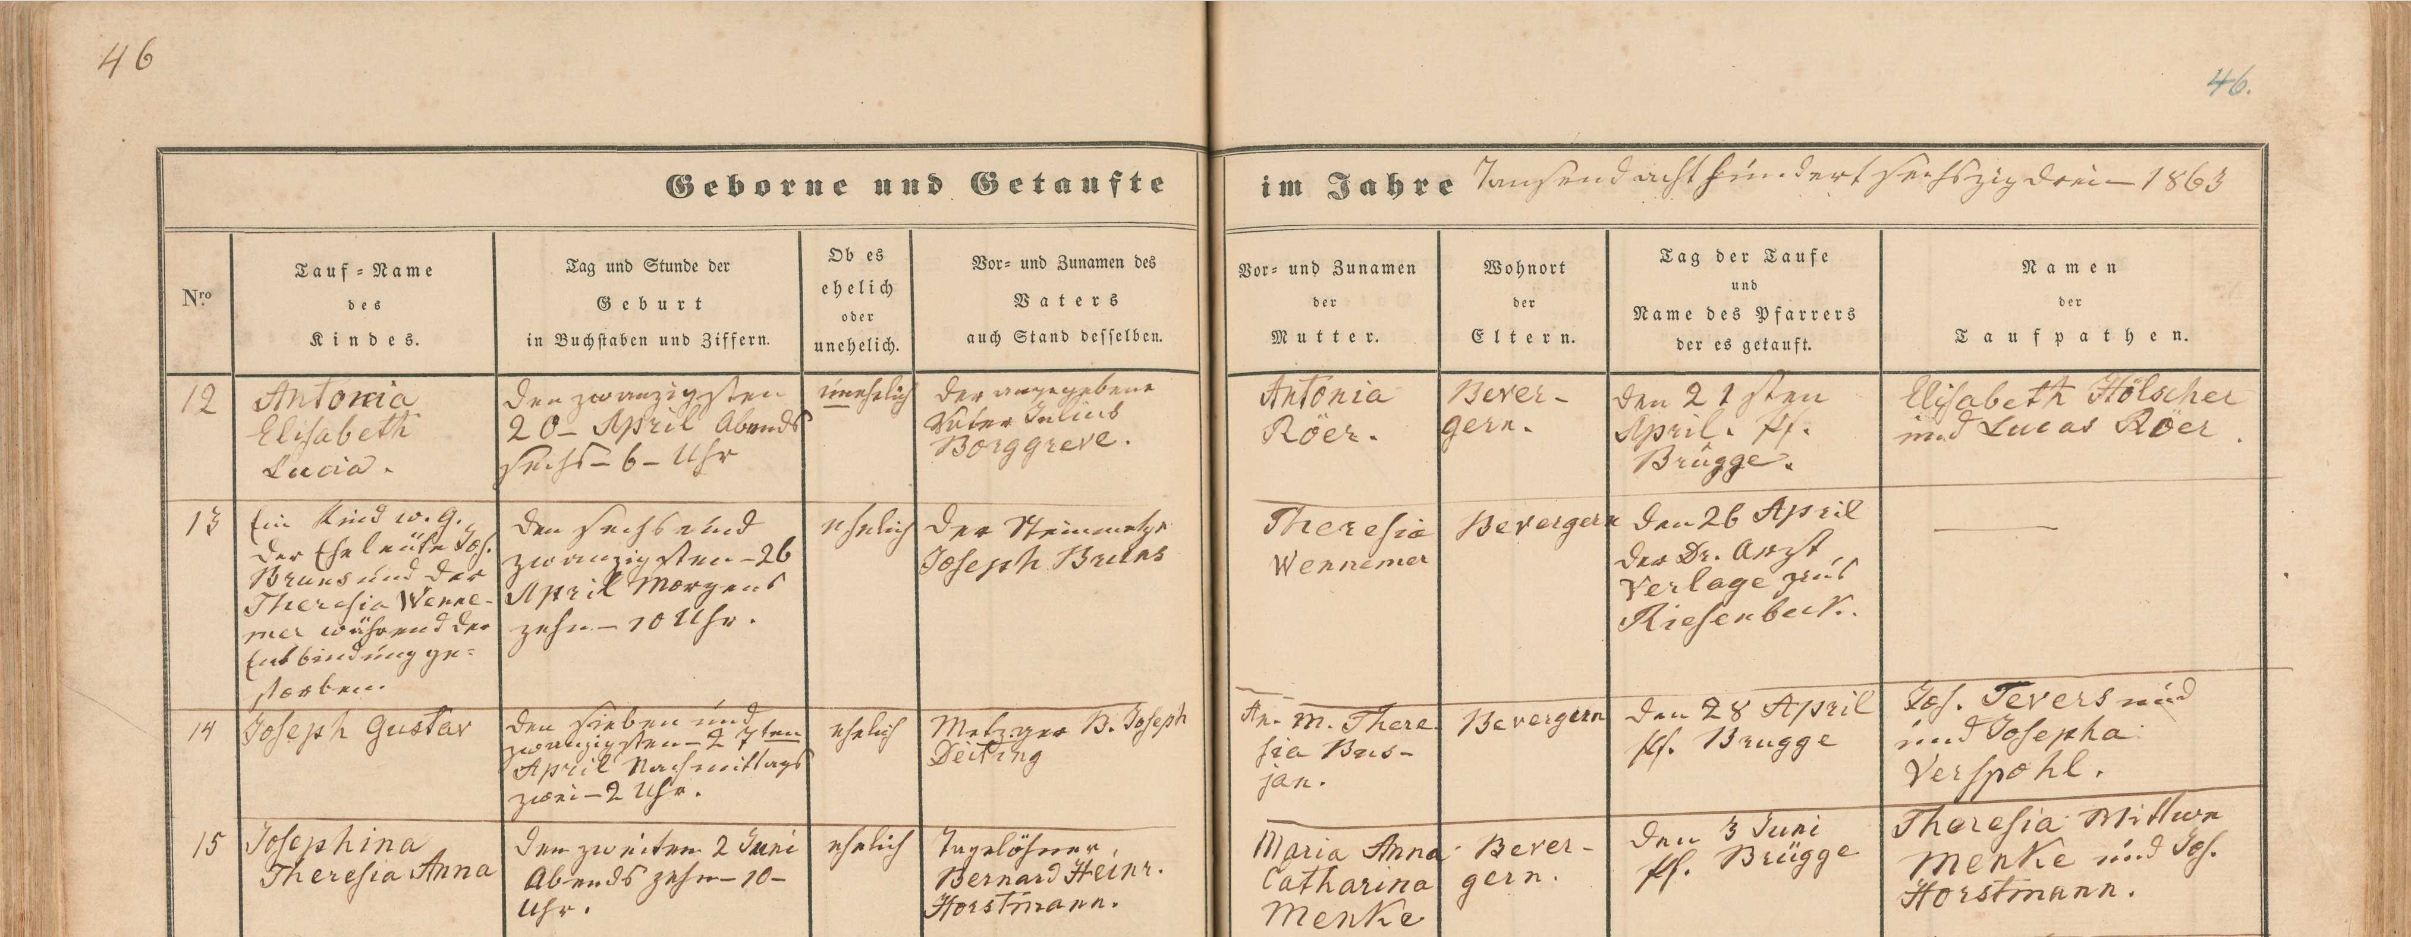 46
46.
Geborne und Getaufte
im Jahre Tausend acht hundert sechszig drei – 1863
Nro.
Tauf-Name
des
Kindes.
Tag und Stunde der
Geburt
in Buchstaben und Ziffern.
Ob es
ehelich
oder
unehelich.
Vor- und Zunamen des
Vaters
auch Stand desselben.
Vor- und Zunamen
der
Mutter.
Wohnort
der
Eltern.
Tag der Taufe
und
Name des Pfarrers
der es getauft.
Namen
der
Taufpathen.
12
Antonia
Elisabeth
Lucia.
den zwanzigsten
20– April Abends
sechs – 6 – Uhr
unehelich
der angegebene
Vater Julius
Borggreve.
Antonia
Röer.
Bever-
gern.
den 21sten
April. Pf.
Brügge.
Elisabeth Hölscher
und Lucas Röer.
13
Ein Kind w. g.
der Eheleute Jos.
Bruns und der
Theresia Wenne-
mer während der
Entbindung ge=
storben.
den sechs und
zwanzigsten – 26
April Morgens
zehn – 10 Uhr.
ehelich
Der Steinmetze
Joseph Bruns
Theresia
Wennemer
Bevergern
den 26 April
der Dr. Arzt
Verlage zu
Riesenbeck.
14
Joseph Gustav
den sieben und
zwanzigsten – 27ten
April Nachmittags
zwei – 2 Uhr.
ehelich
Metzger B. Joseph
Deiting
An. M. There
sia Bus-
jan.
Bevergern
den 28 April
Pf. Brugge
Jos. Tevers und
und Josepha
Verspohl.
15
Josephina
Theresia Anna
den zweiten 2 Juni
Abends zehn – 10 –
Uhr.
ehelich
Tagelöhner,
Bernard Heinr.
Horstmann.
Maria Anna
Catharina
Menke
Bever-
gern.
den 3 Juni
Pf. Brügge
Theresia Wittwe
Menke und Jos.
Horstmann.